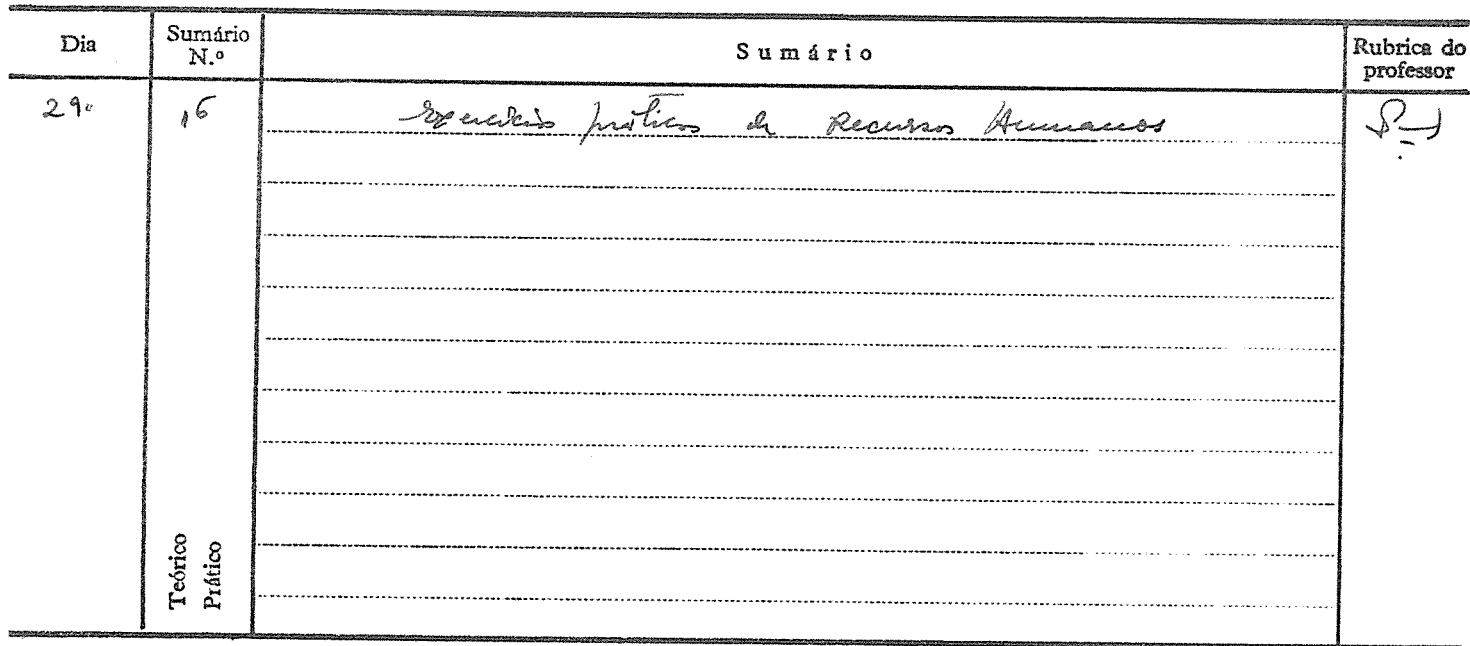 Dia
Sumário N.º
Sumário
Rubrica do professor
29
16
Exercícios práticos de Recursos Humanos
Teórico
Prático